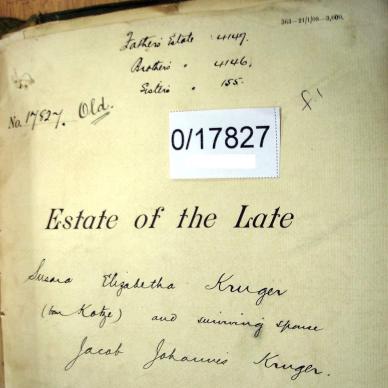 363—21/1/08—3,000.
Father's Estate 4147.
Brother's " 4146.
Sister's " 155.
No. 17827. Old.
£1
0/17827
Estate of the Late
Susara Elizabetha Kruger
(born Kotze) and surviving spouse
Jacob Johannes Kruger.